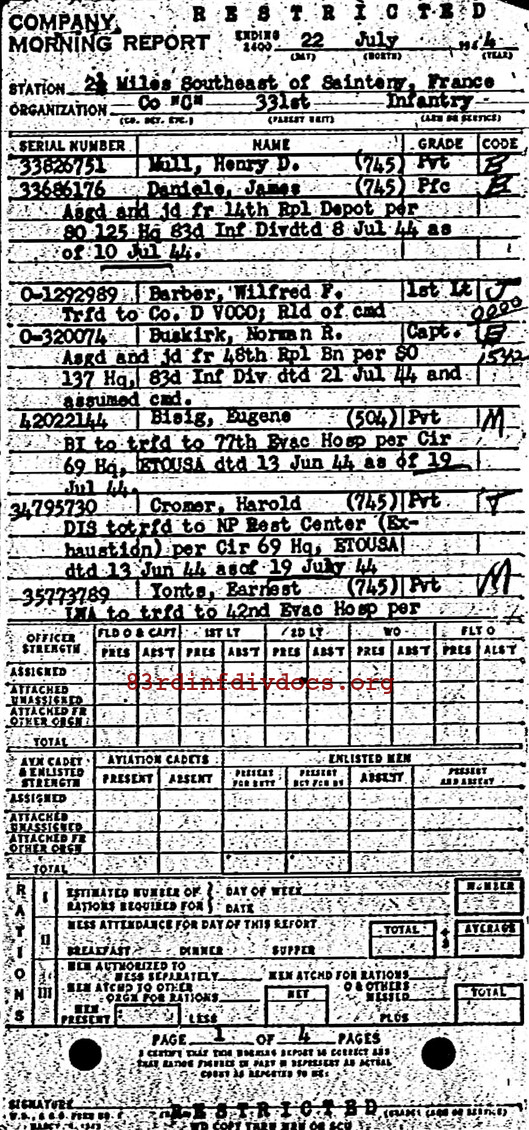 RESTRICTED
COMPANY
MORNING REPORT ENDING 2400 22 July 194 4
(DAY) (MONTH) (YEAR)
STATION 2½ Miles Southeast of Sainteny, France
ORGANIZATION Co "C" 331st Infantry
(CO. DET. ETC.) (PARENT UNIT) (ARM OR SERVICE)
SERIAL NUMBER NAME GRADE CODE
33826751 Mull, Henry D. (745) Pvt
33686176 Daniele, James (745) Pfc
Asgd and jd fr 14th Rpl Depot per
SO 125 Hq 83d Inf Divdtd 8 Jul 44 as
of 10 Jul 44.
O-1292989 Barber, Wilfred F. 1st Lt J
Trfd to Co. D VOCO; Rld of cmd 0000
O-320074 Buskirk, Norman R. Capt. E
Asgd and jd fr 48th Rpl Bn per SO 1542
137 Hq, 83d Inf Div dtd 21 Jul 44 and
assumed cmd.
42022144 Bisig, Eugene (504) Pvt M
BI to trfd to 77th Evac Hosp per Cir
69 Hq, ETOUSA dtd 13 Jun 44 as of 19
Jul 44.
34795730 Cromer, Harold (745) Pvt
DIS totrfd to NP Rest Center (Ex-
haustion) per Cir 69 Hq, ETOUSA
dtd 13 Jun 44 asof 19 July 44
35773789 Yonts, Earnest (745) Pvt M
LWA to trfd to 42nd Evac Hosp per
OFFICER STRENGTH FLD O & CAPT 1ST LT 2D LT WO FLT O
PRES ABS'T PRES ABS'T PRES ABS'T PRES ABS'T PRES ABS'T
ASSIGNED
ATTACHED UNASSIGNED
ATTACHED FR OTHER ORGN
TOTAL
83rdinfdivdocs.org
AVN CADET & ENLISTED STRENGTH AVIATION CADETS ENLISTED MEN
PRESENT ABSENT PRESENT FOR DUTY PRESENT NOT FOR DY ABSENT PRESENT AND ABSENT
ASSIGNED
ATTACHED UNASSIGNED
ATTACHED FR OTHER ORGN
TOTAL
RATIONS
I ESTIMATED NUMBER OF RATIONS REQUIRED FOR DAY OF WEEK DATE NUMBER
II MESS ATTENDANCE FOR DAY OF THIS REPORT TOTAL ÷ 3 AVERAGE
BREAKFAST DINNER SUPPER
III MEN AUTHORIZED TO MESS SEPARATELY MEN ATCHD FOR RATIONS
MEN ATCHD TO OTHER ORGN FOR RATIONS NET O & OTHERS MESSED TOTAL
MEN PRESENT LESS PLUS
PAGE 1 OF 4 PAGES
I CERTIFY THAT THIS MORNING REPORT IS CORRECT AND
THAT RATION FIGURES IN PART II REPRESENT AN ACTUAL
COUNT AS REPORTED TO ME:
SIGNATURE
RESTRICTED